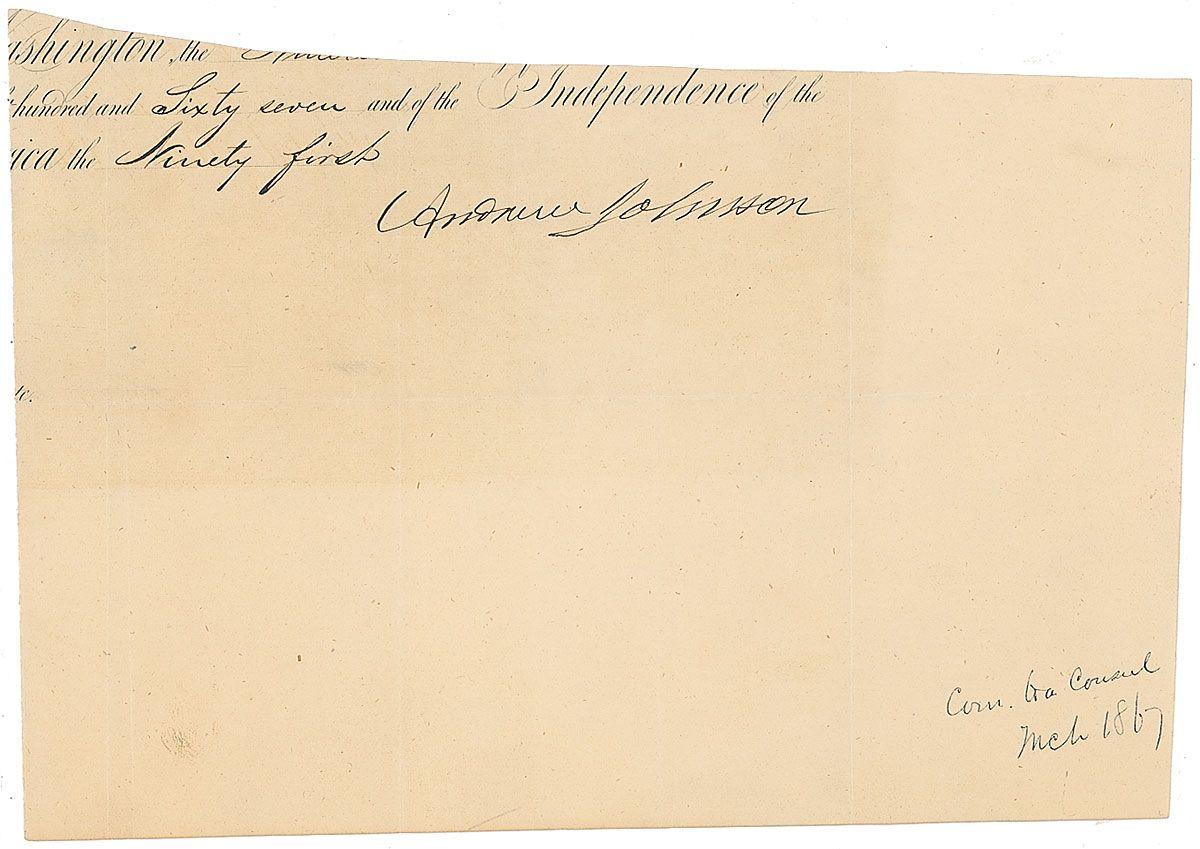 ashington, the
hundred and Sixty seven and of the Independence of the
ica the Ninety first
Andrew Johnson
te.
Com. Consul
Mch 1867